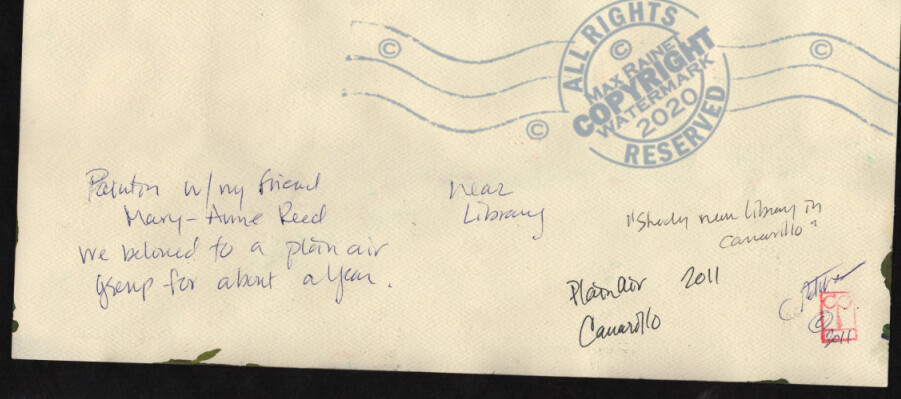 ALL RIGHTS
©
©
©
MAX RAINET
COPYRIGHT
WATERMARK
2020
©
RESERVED
w/ my friend
Mary-Anne Reed
we beloned to a plain air
group for about a year.
near
Library
"Shady near Library in
Camarillo"
Plain air 2011
Camarillo
©
2011